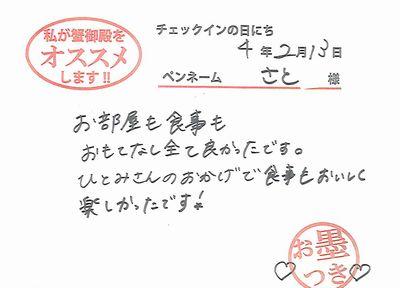 私が蟹御殿を
オススメ
します!!
チェックインの日にち
4年2月13日
ペンネーム さと 様
お部屋も食事も
おもてなし全て良かったです。
ひとみさんのおかげで食事もおいしく
楽しかったです!
お墨
つき